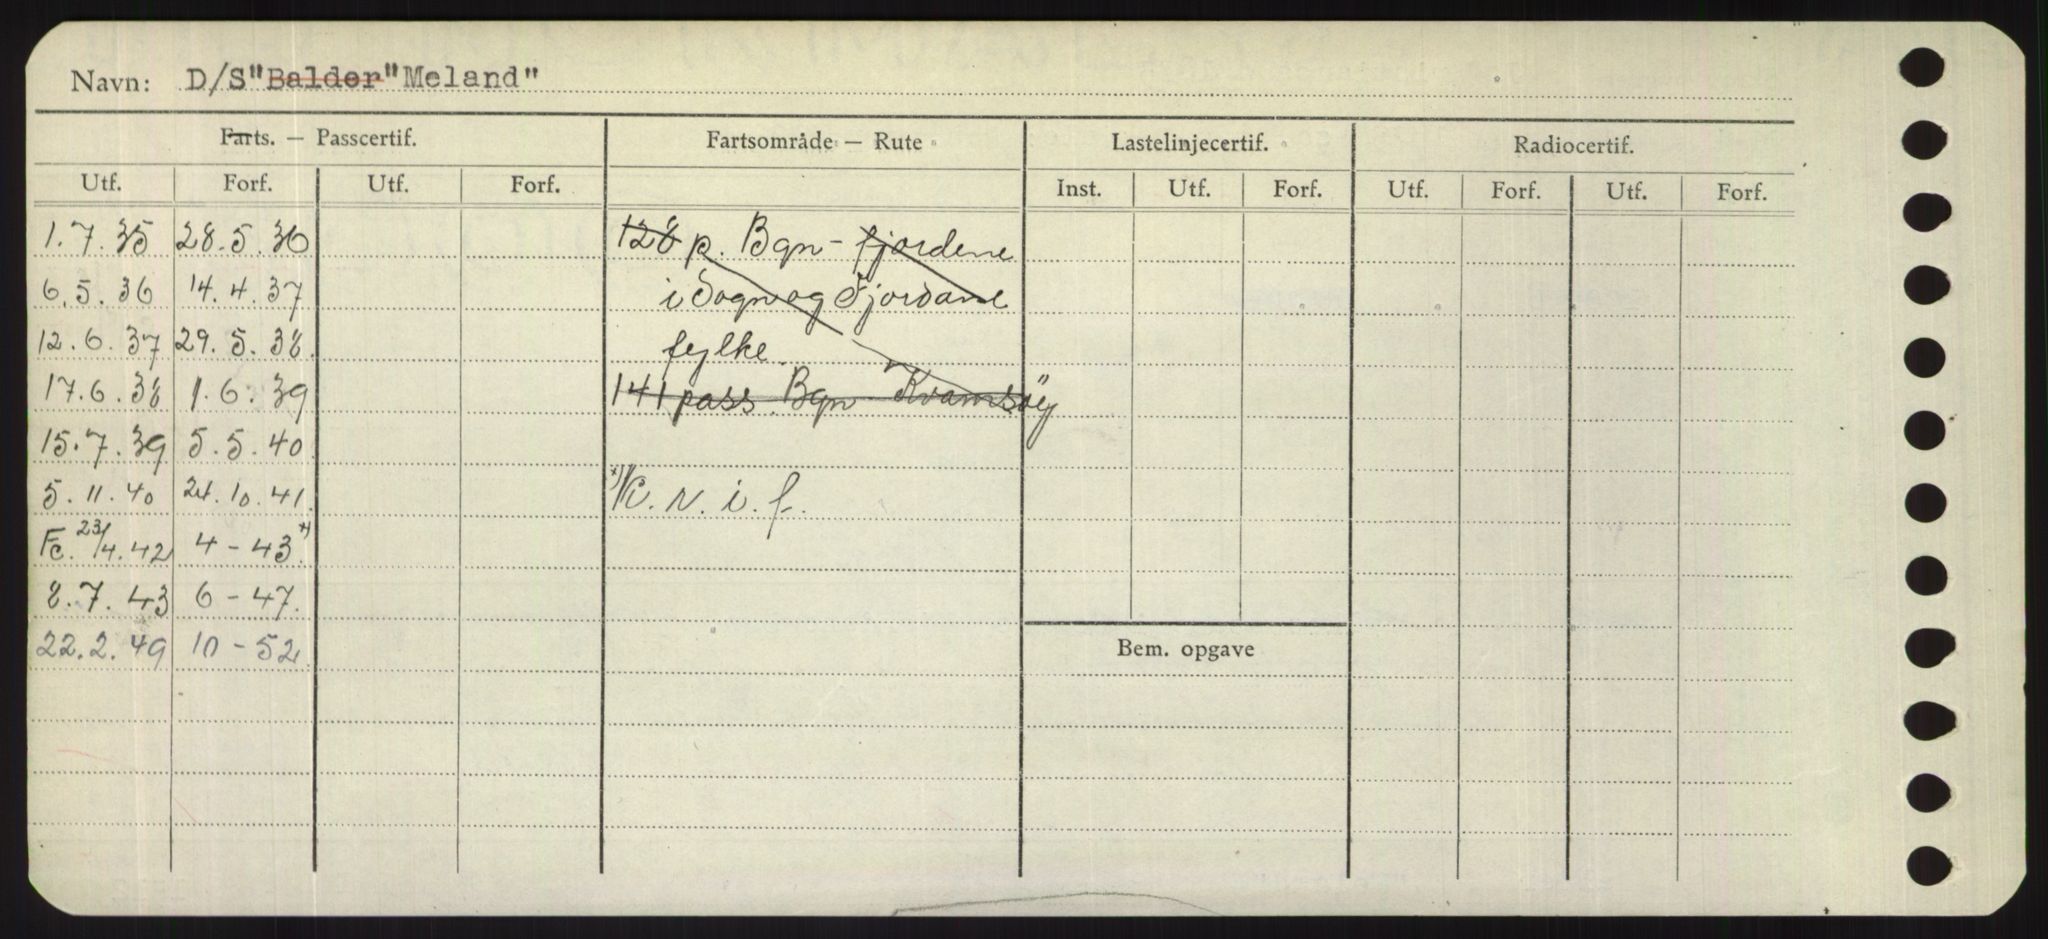 Navn: D/S "Balder" Meland"
Farts. — Passcertif. Fartsområde — Rute Lastelinjecertif. Radiocertif.
Utf. Forf. Utf. Forf. Inst. Utf. Forf. Utf. Forf. Utf. Forf.
1.7.35 28.5.36 128 p. Bgn - fjordene
6.5.36 14.4.37 i Sogn og Fjordane
12.6.37 29.5.38 fylke
17.6.38 1.6.39 141 pass. Bgn Kvamsöy
15.7.39 5.5.40
5.11.40 24.10.41 x) K.N.i.f.
Fc. 23/4.42 4-43 x)
8.7.43 6-47.
22.2.49 10-52
Bem. opgave